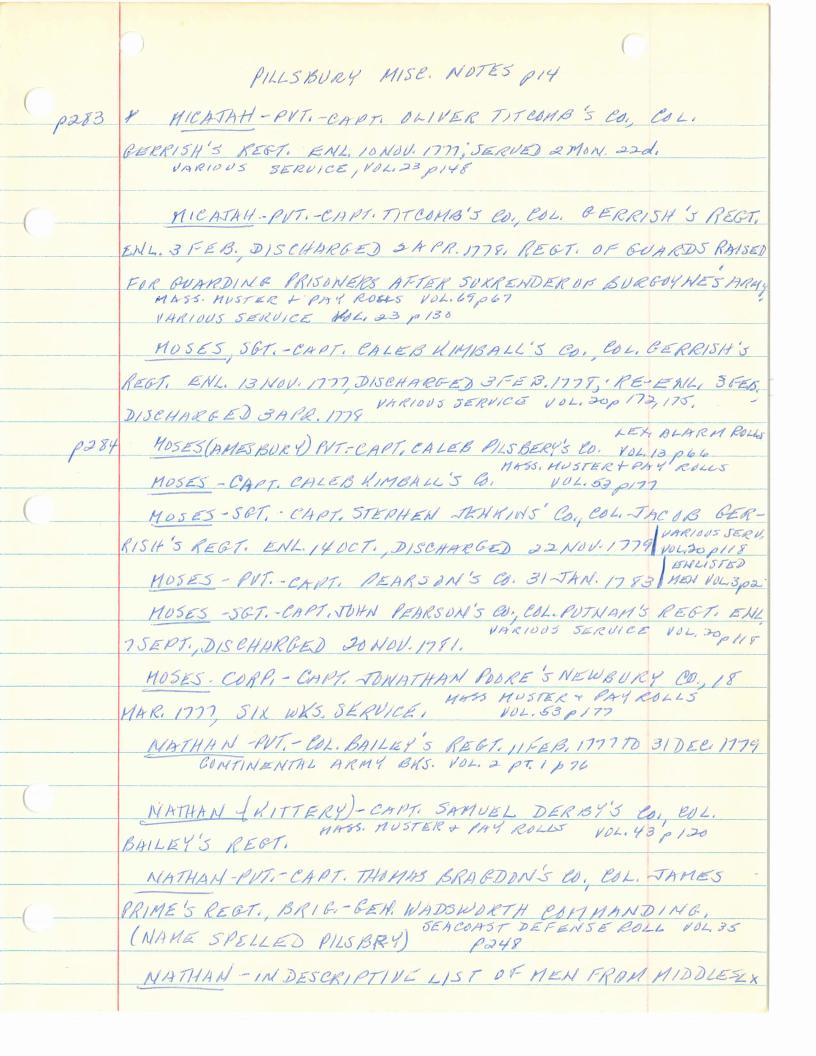 PILLSBURY MISC. NOTES p14
p283 * MICAJAH - PVT. - CAPT. OLIVER TITCOMB'S CO., COL.
GERRISH'S REGT. ENL. 10 NOV. 1777; SERVED 2 MON. 22d.
VARIOUS SERVICE, VOL. 23 p148
MICAJAH - PVT. - CAPT. TITCOMB'S CO., COL. GERRISH'S REGT.
ENL. 3 FEB., DISCHARGED 2 APR. 1778. REGT. OF GUARDS RAISED
FOR GUARDING PRISONERS AFTER SURRENDER OF BURGOYNE'S ARMY.
MASS. MUSTER + PAY ROLLS VOL. 69 p67
VARIOUS SERVICE VOL. 23 p130
MOSES, SGT. - CAPT. CALEB KIMBALL'S CO., COL. GERRISH'S
REGT. ENL. 13 NOV. 1777, DISCHARGED 3 FEB. 1778; RE-ENL. 3 FEB.
VARIOUS SERVICE VOL. 20 p172, 175.
DISCHARGED 3 APR. 1779
LEX ALARM ROLLS
p284 MOSES (AMESBURY) PVT - CAPT. CALEB PILSBERY'S CO. VOL. 13 p66
MASS. MUSTER + PAY ROLLS
MOSES - CAPT. CALEB KIMBALL'S CO. VOL. 53 p177
MOSES - SGT. - CAPT. STEPHEN JENKINS' CO., COL. JACOB GER-
VARIOUS SERV.
RISH'S REGT. ENL. 14 OCT., DISCHARGED 22 NOV. 1779 VOL. 20 p118
ENLISTED
MOSES - PVT. - CAPT. PEARSON'S CO. 31 JAN. 1783 MEN VOL. 3 p2
MOSES - SGT. - CAPT. JOHN PEARSON'S CO., COL. PUTNAM'S REGT. ENL
VARIOUS SERVICE VOL. 20 p118
7 SEPT., DISCHARGED 20 NOV. 1781.
MOSES - CORP. - CAPT. JONATHAN POORE'S NEWBURY CO., 18
MASS MUSTER + PAY ROLLS
MAR. 1777, SIX WKS. SERVICE. VOL. 53 p177
NATHAN - PVT. - COL. BAILEY'S REGT. 11 FEB. 1777 TO 31 DEC. 1779
CONTINENTAL ARMY BKS. VOL. 2 PT. 1 p76
NATHAN - (KITTERY) - CAPT. SAMUEL DERBY'S CO., COL.
MASS. MUSTER + PAY ROLLS VOL. 43 p120
BAILEY'S REGT.
NATHAN - PVT. - CAPT. THOMAS BRAGDON'S CO., COL. JAMES
PRIME'S REGT., BRIG.-GEN. WADSWORTH COMMANDING.
SEACOAST DEFENSE ROLL VOL 35
(NAME SPELLED PILSBRY) p248
NATHAN - IN DESCRIPTIVE LIST OF MEN FROM MIDDLESEX